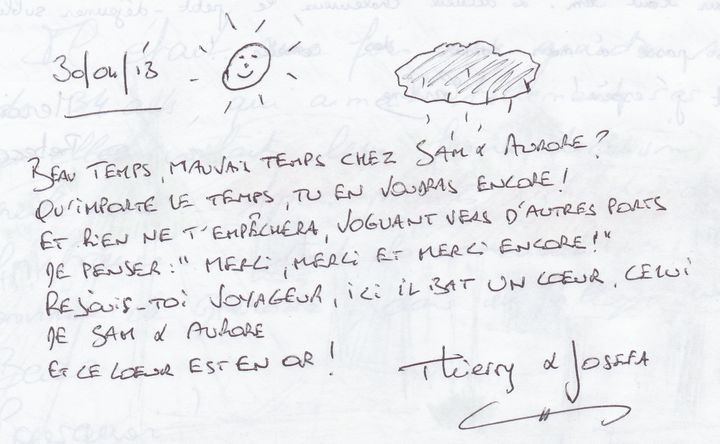 30/04/13
BEAU TEMPS, MAUVAIS TEMPS CHEZ SAM & AURORE ?
QU'IMPORTE LE TEMPS, TU EN VOUDRAS ENCORE !
ET RIEN NE T'EMPÊCHERA, VOGUANT VERS D'AUTRES PORTS
DE PENSER : " MERCI, MERCI ET MERCI ENCORE ! "
REJOUIS-TOI VOYAGEUR, ICI IL BAT UN COEUR, CELUI
DE SAM & AURORE
ET CE COEUR EST EN OR !
Thierry & JOSEFA